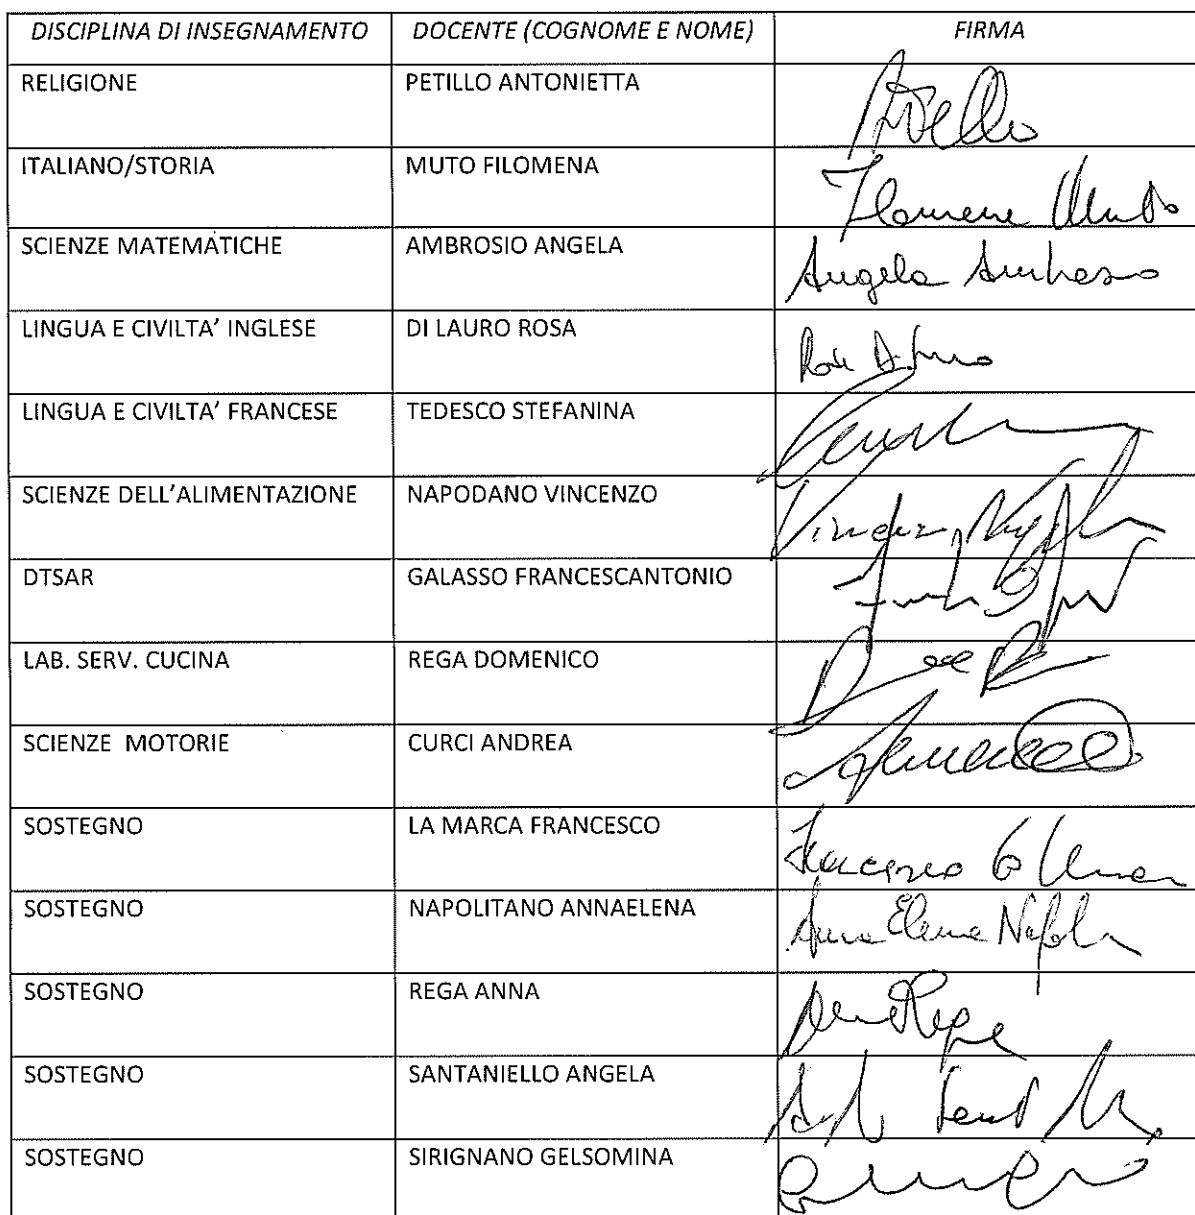 DISCIPLINA DI INSEGNAMENTO DOCENTE (COGNOME E NOME) FIRMA
RELIGIONE PETILLO ANTONIETTA
ITALIANO/STORIA MUTO FILOMENA Filomena Muto
SCIENZE MATEMATICHE AMBROSIO ANGELA Angela Ambrosio
LINGUA E CIVILTA’ INGLESE DI LAURO ROSA
LINGUA E CIVILTA’ FRANCESE TEDESCO STEFANINA
SCIENZE DELL’ALIMENTAZIONE NAPODANO VINCENZO
DTSAR GALASSO FRANCESCANTONIO
LAB. SERV. CUCINA REGA DOMENICO
SCIENZE MOTORIE CURCI ANDREA
SOSTEGNO LA MARCA FRANCESCO Francesco La Marca
SOSTEGNO NAPOLITANO ANNAELENA
SOSTEGNO REGA ANNA Anna Rega
SOSTEGNO SANTANIELLO ANGELA
SOSTEGNO SIRIGNANO GELSOMINA